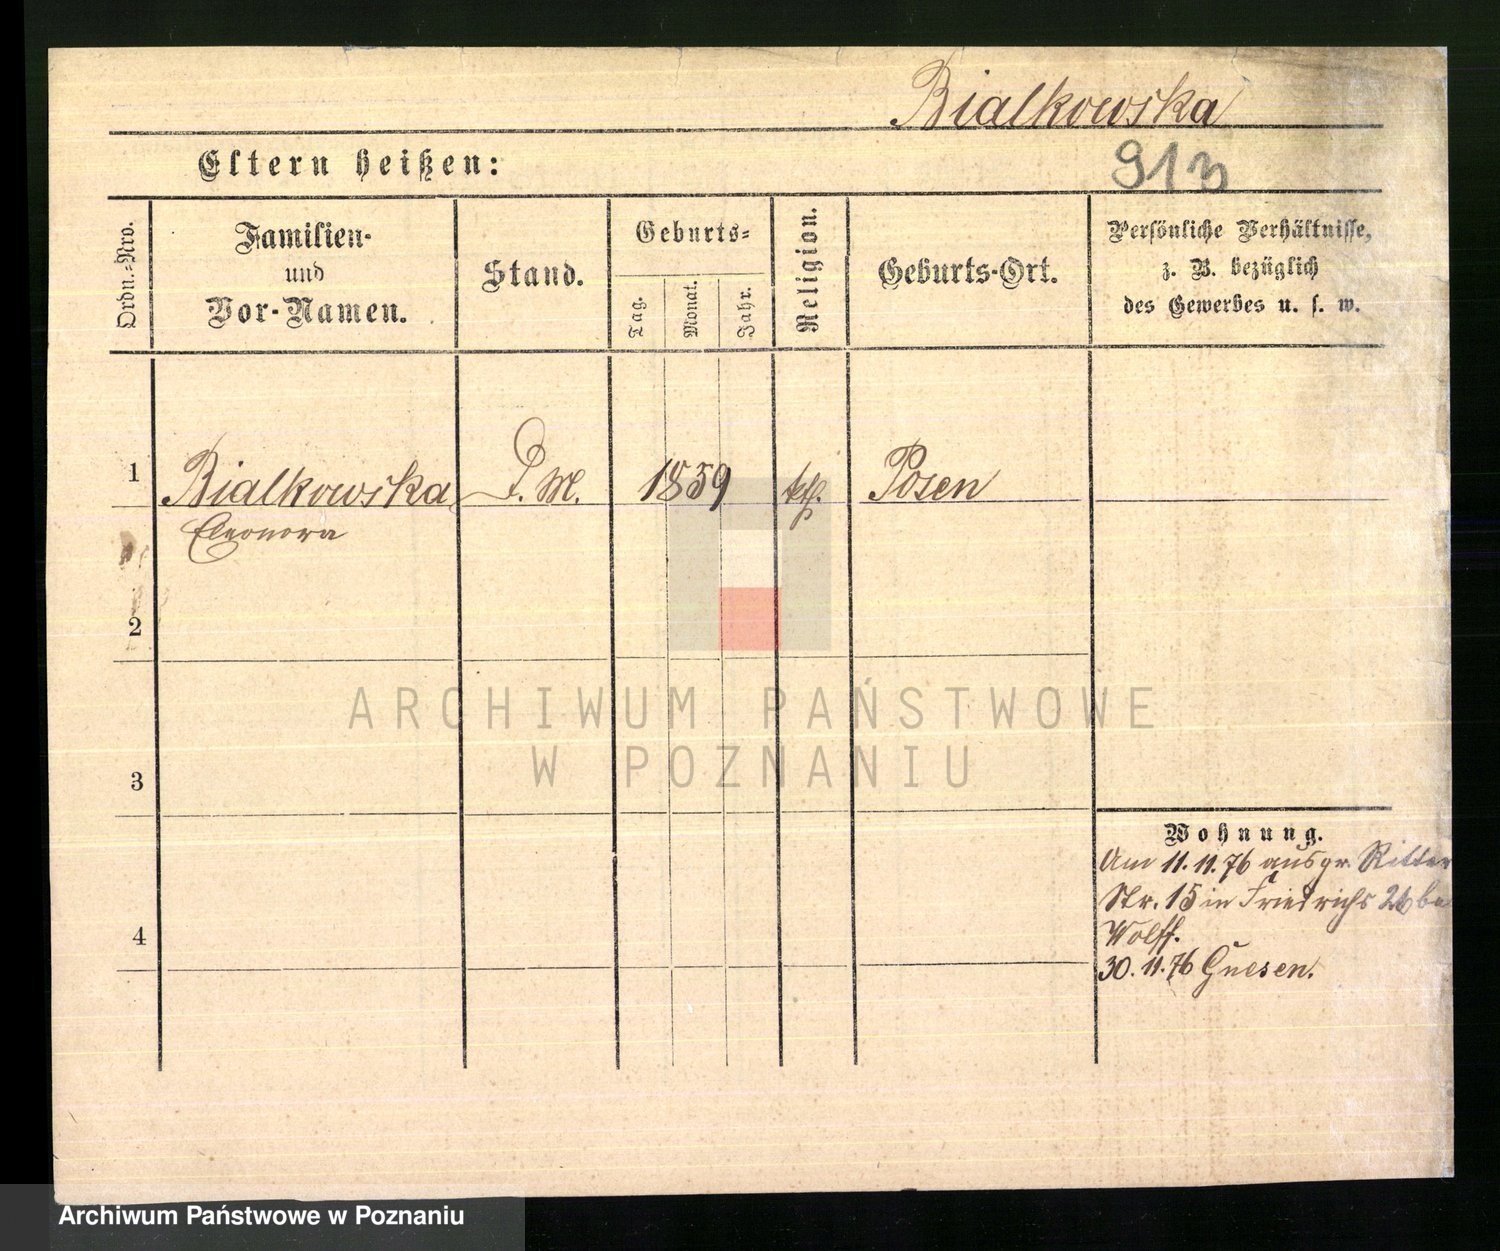 Bialkowska
Eltern heißen:
913
Ordn.-Nro.
Familien-
und
Vor-Namen.
Stand.
Geburts-
Tag.
Monat.
Jahr.
Religion.
Geburts-Ort.
Persönliche Verhältnisse,
z. B. bezüglich
des Gewerbes u. s. w.
1
Bialkowska
D. M.
1859
kth.
Posen
Eleonora
2
3
4
ARCHIWUM PAŃSTWOWE
W POZNANIU
Wohnung.
Am 11.11.76 aus gr. Ritter
Str. 15 in Friedrichs 26 be
Wolff.
30.11.76 Gnesen.
Archiwum Państwowe w Poznaniu